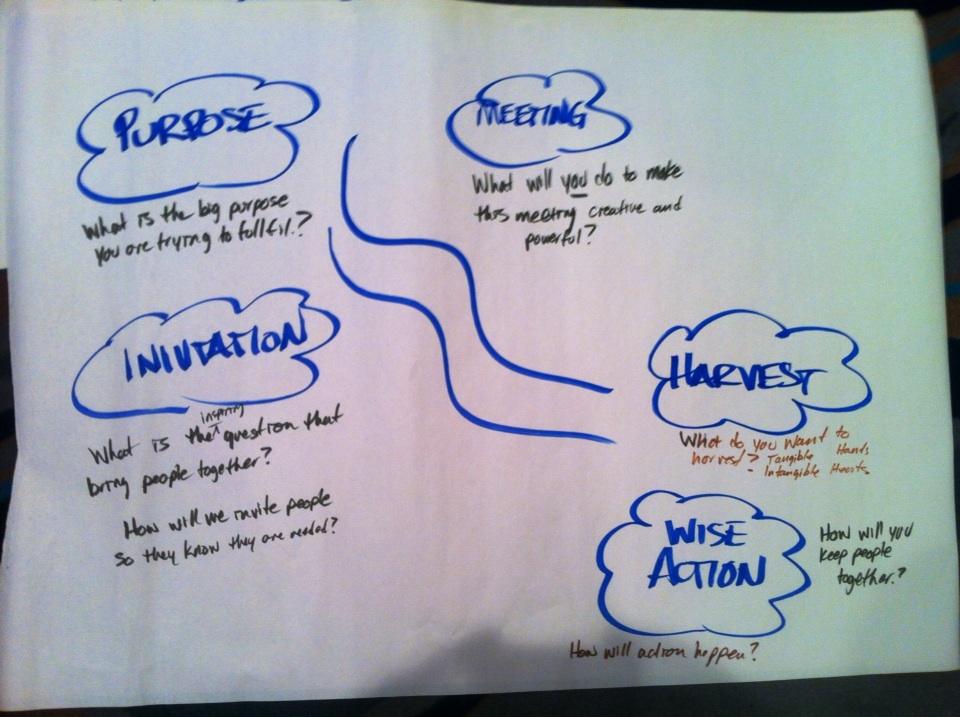 PURPOSE
What is the big purpose
you are trying to fullfil.?
MEETING
What will you do to make
this meeting creative and
powerful?
INIVTATION
inspiring
What is the question that
bring people together?
How will we invite people
so they know they are needed?
HARVEST
What do you want to
harvest? Tangible Hands
- Intangible Hearts
WISE
ACTION
How will you
keep people
together.?
How will action happen?